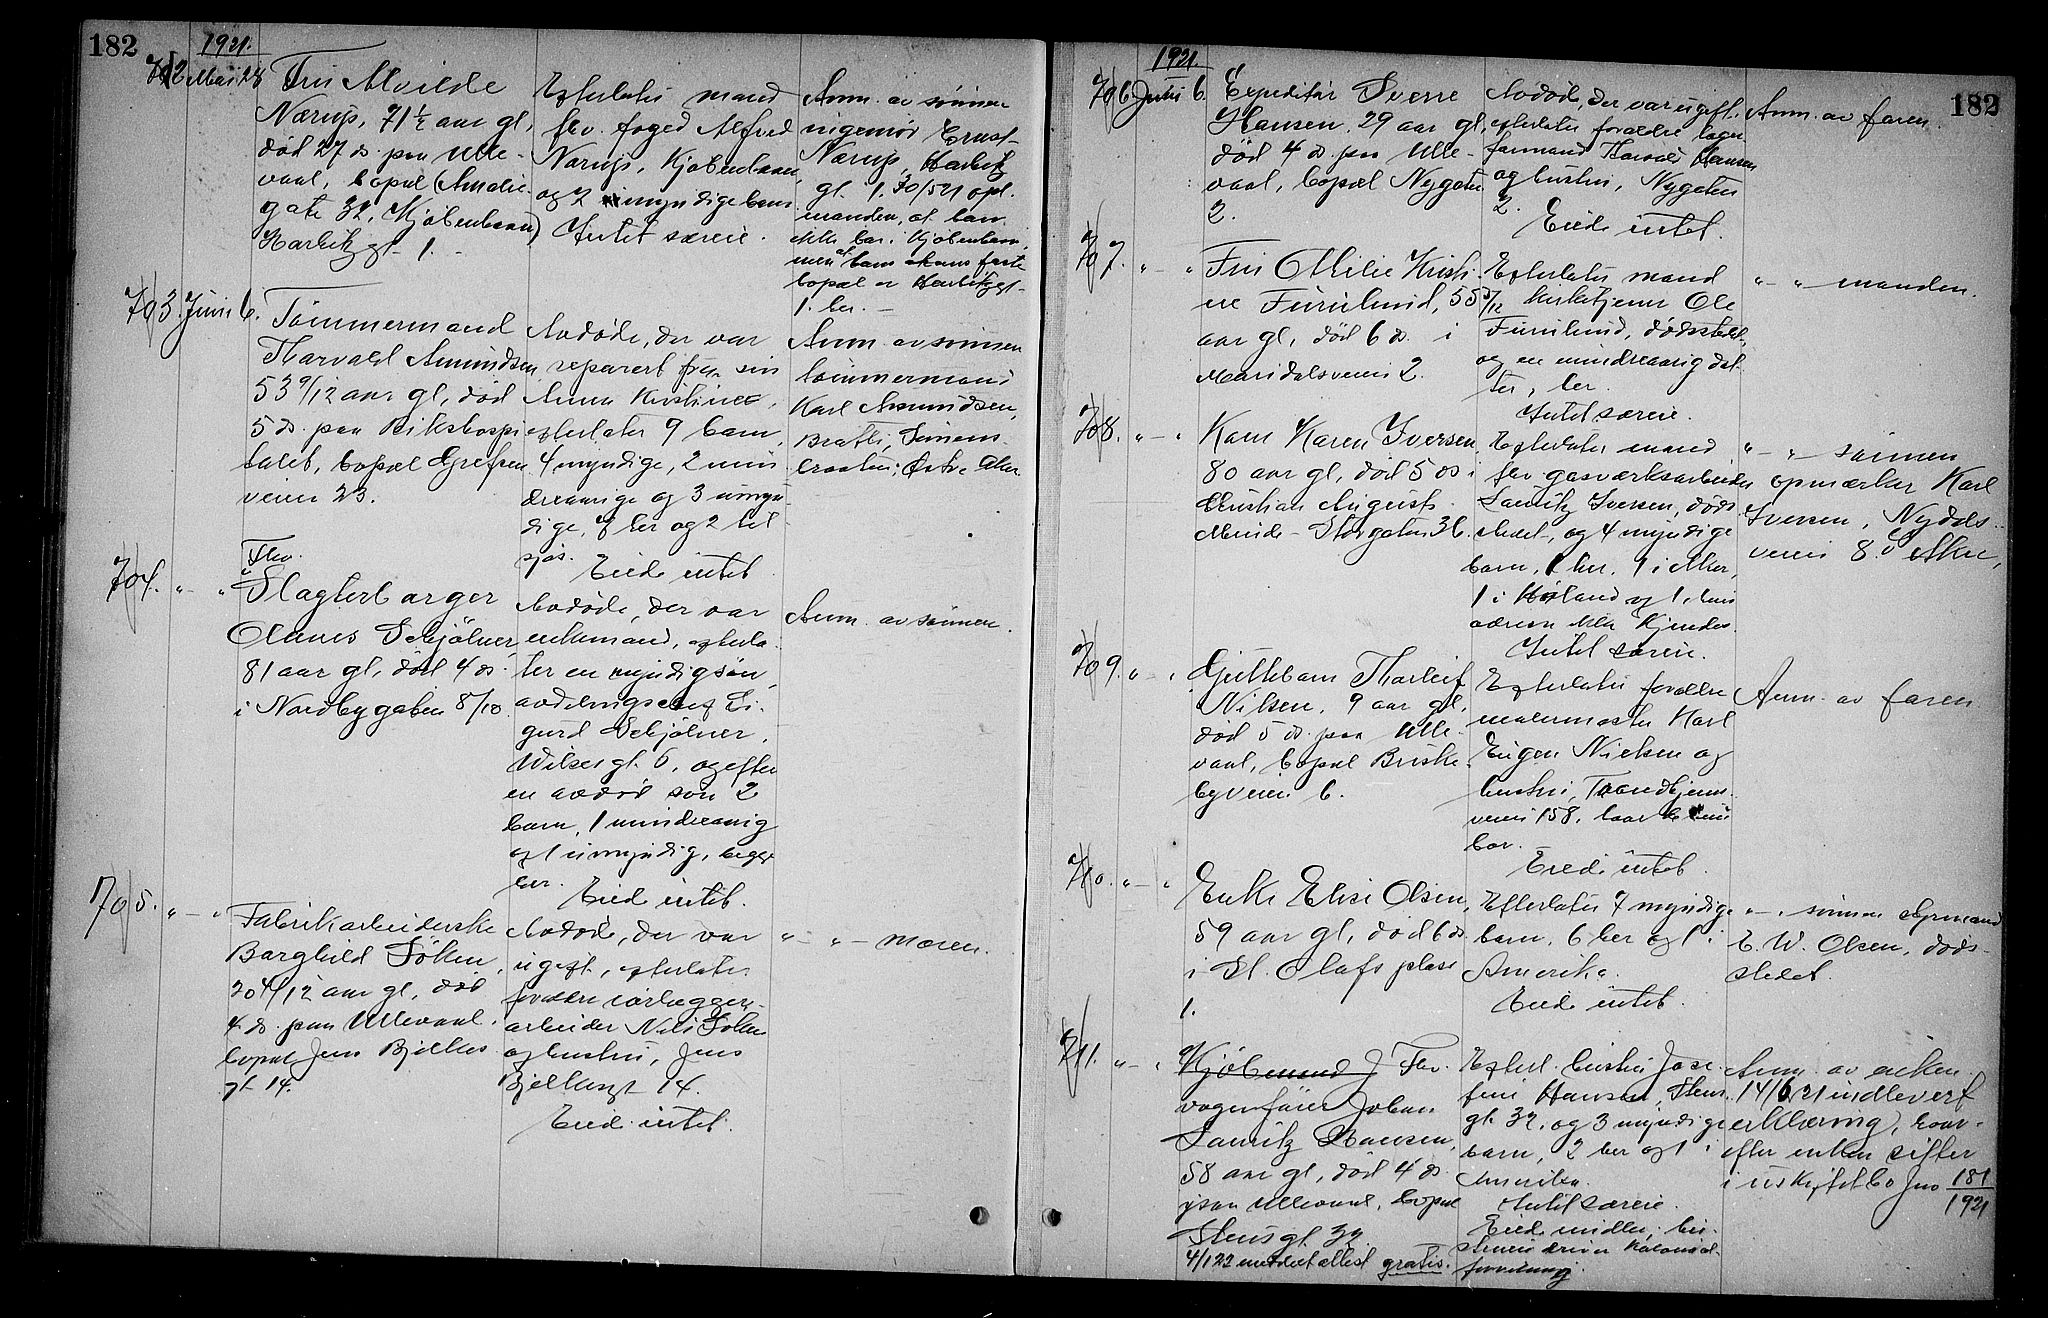 182
1921.
702 Mai 28
Fru Alvilde
Nærup, 71½ aar gl,
död 27 ds. paa Ulle-
vaal, bopæl (Amalie
gate 32, Kjöbenhavn)
Harbitzgt. 1.
Efterlater mand
fhv. foged Alfred
Nærup, Kjöbenhavn,
og 2 myndige barn
Intet særeie.
Anm. av sönnen
ingeniör Ernst
Nærup, Harbitz
gt. 1, 30/5 21 opl.
manden, at han
ikke bor i Kjöbenhavn,
men at hans faste
bopæl er Harbitzgt
1. her.
703. Juni 6.
Tömmermand
Thorvald Amundsen
53 9/12 aar gl, död
5 ds. paa Rikshospi
talet, bopæl Grefsen
veien 23.
Avdöde, der var
separert fra sin
Anna Kristine,
efterlater 9 barn,
4 myndige, 2 min
dreaarige og 3 umyn
dige, 7 her og 2 til
sjös.
Eiede intet
Anm. av sönnen
tömmermand
Karl Amundsen,
Bratli, Simens-
braaten, Östre Aker
704. " - "
Fhv.
Slagterborger
Olaues Schjölner,
81 aar gl, död 4 ds.
i Nordbygaten 8/10
Avdöde, der var
enkemand, efterla-
ter en myndig sön,
avdelingschef Si-
gurd Schjölner,
Wilsesgt. 6, og efter
en avdöd sön 2
barn, 1 mindreaarig
og 1 umyndig, begge
her.
Eiede intet.
Anm. av sönnen.
705. " - "
Fabrikarbeiderske
Borghild Söken,
20 4/12 aar gl, död
4 ds. paa Ullevaal,
bopæl Jens Bjelkes
gt 14.
Avdöde, der var
ugift, efterlater
forældre
arbeider Nils Söken
og hustru, Jens
Bjelkesgt 14.
Eiede intet.
" - " - moren.
182
1921.
706. Juni 6.
Expeditör Sverre
Hansen, 29 aar gl,
död 4 ds. paa Ulle-
vaal, bopæl Nygaten
2.
Avdöde, der var ugift,
efterlater forældre lager
formand Harald Hansen
og hustru, Nygaten
2.
Eiede intet.
Anm. av faren.
707. " - "
Fru Milie Kristi-
ne Furulund, 55 5/12
aar gl, död 6 ds. i
Maridalsveien 2.
Efterlater mand
kirketjener Ole
Furulund, dödsstedet,
og en mindreaarig dat
ter, her.
Intet særeie.
" - " - manden.
708. " - "
Kone Karen Iversen
80 aar gl, död 5 ds i
Christian August's
Minde - Storgaten 36.
Efterlater mand
fhv gasværksarbeider
Lauritz Iversen, döds-
stedet, og 4 myndige
barn, 1 her, 1 i Aker,
1 i HSland og 1, hvis
adresse ikke kjendes.
Intet særeie.
" - " sönnen
opmærker Karl
Iversen, Nydals-
veien 8. Ö Aker,
709. " - "
Guttebarn Thorleif
Nilsen, 9 aar gl,
död 5 ds. paa Ulle-
vaal, bopæl Briske-
byveien 6.
Efterlater forældre
malermester Karl
Eugen Nielsen og
hustru, Trondhjems-
veien 158, hvor
bor.
Eiede intet.
Anm. av faren
710. " - "
Enke Elise Olsen,
59 aar gl, död 6 ds.
i St. Olafs plass
1.
Efterlater 7 myndige
barn, 6 her og 1 i
Amerika.
Eiede intet.
" - " sönnen styrmand
E. W. Olsen, döds-
stedet
711. " - "
Kjöbmand J Fhv.
vognförer Johan
Lauritz Hansen,
58 aar gl, död 4 ds
paa Ullevaal, bopæl
Stensgt. 32
4/1 22 meddelt attest gratis.
Efterl. hustru Jose-
fine Hansen, Stens-
gt. 32, og 3 myndige
barn, 2 her og 1 i
Amerika.
Intet særeie.
Eiede midler, hu-
struen driver kolonial-
forretning.
Anm. av enken.
14/6 21 indlevert
erklæring, hvor-
efter enken sitter
i uskiftet bo Jno 181/1921